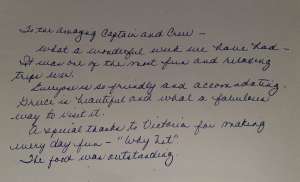 To the amazing Captain and Crew -
What a wonderful week we have had -
It was one of the most fun and relaxing
trips ever.
Everyone is so friendly and accommodating.
Greece is beautiful and what a fabulous
way to visit it.
A special thanks to Victoria for making
every day fun - "Why Not"
The food was outstanding.